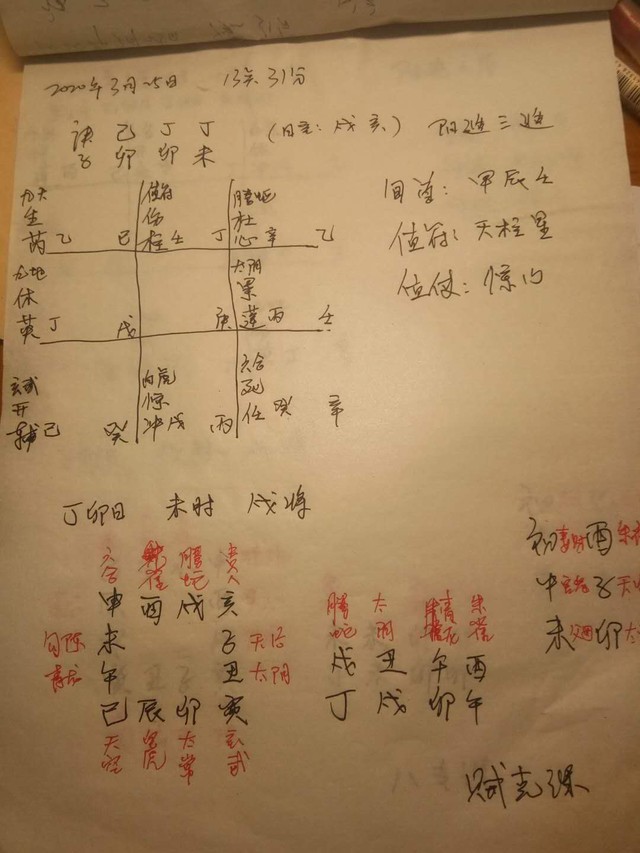 2020年3月25日 13点31分
庚 己 丁 丁 (日空:戌亥) 阳遁三遁
子 卯 卯 未
旬首:甲辰壬
值符:天柱星
值使:惊门
九天 值符 腾蛇
生 伤 杜
芮 乙 己 柱 壬 丁 心 辛 乙
九地 太阴
休 景
英 丁 戊 庚 蓬 丙 壬
玄武 白虎 六合
开 惊 死
辅 己 癸 冲 戊 丙 任 癸 辛
丁卯日 未时 戌将
六合 朱雀 腾蛇 贵人
申 酉 戌 亥
勾陈 未 子 天后
青龙 午 丑 太阴
巳 辰 卯 寅
天空 白虎 太常 玄武
腾蛇 太阴 青龙 朱雀
戌 丑 午 酉
丁 戌 卯 午
初 妻财 酉
中 子
末 卯
贼克课